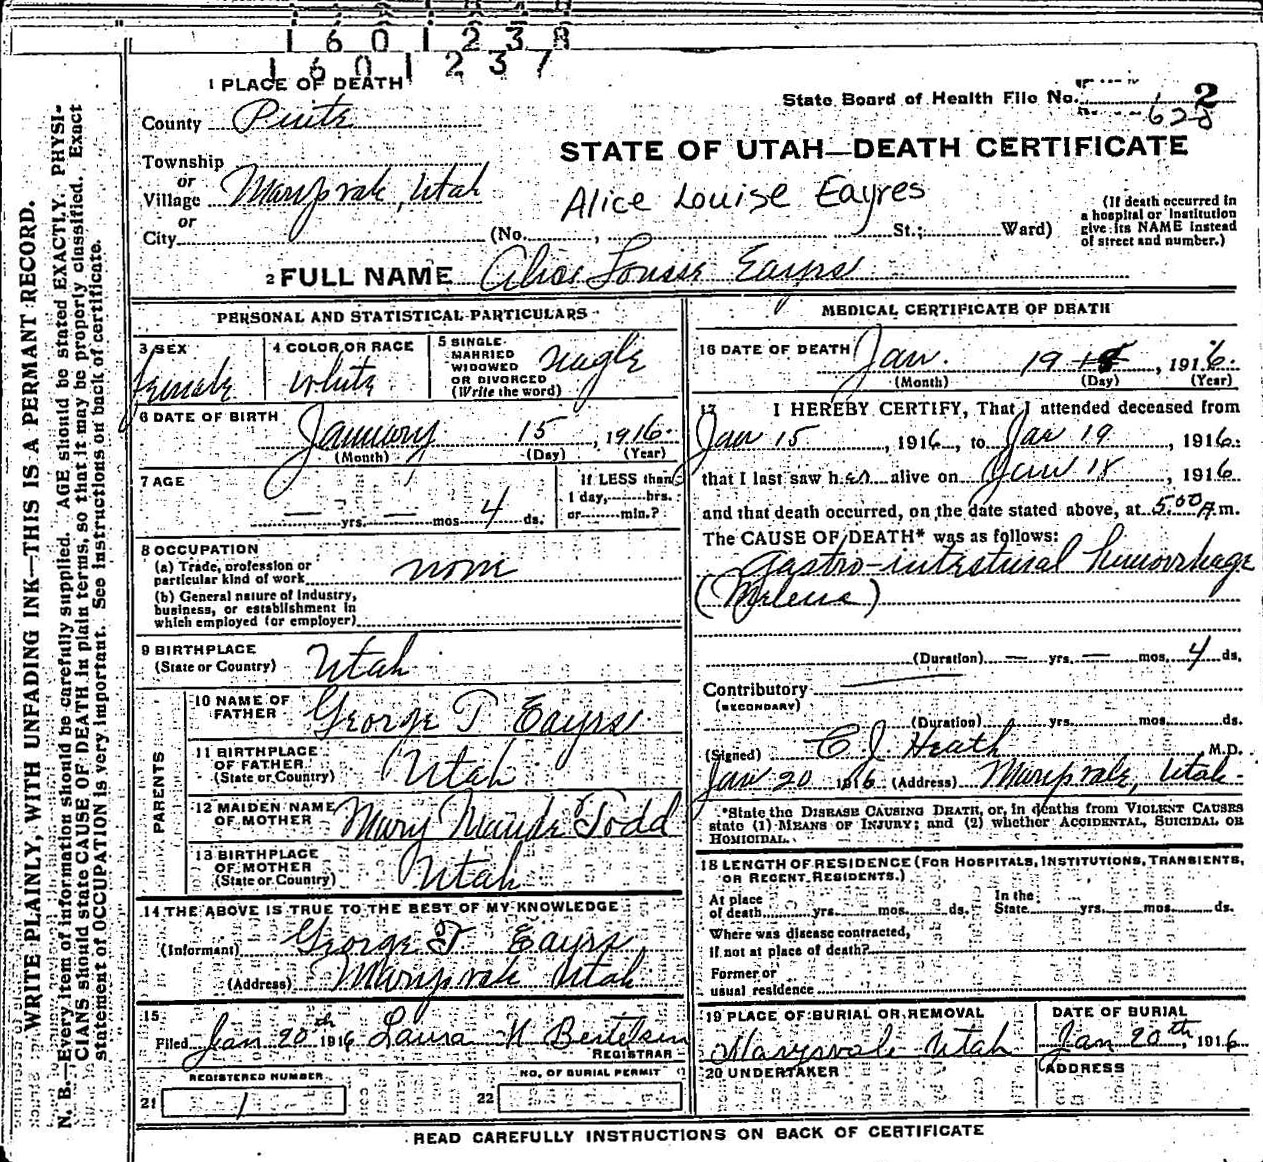 1 6 0 1 2 3 8
1 6 0 1 2 3 7
1 PLACE OF DEATH
State Board of Health File No. 2
628
County Piute
STATE OF UTAH—DEATH CERTIFICATE
Township
or
Village Marysvale, Utah
or
City (No. , St.; Ward)
Alice Louise Eayres
(If death occurred in
a hospital or institution
give its NAME instead
of street and number.)
2 FULL NAME Alice Louise Eayrs
PERSONAL AND STATISTICAL PARTICULARS
3 SEX
female
4 COLOR OR RACE
White
5 SINGLE
MARRIED
WIDOWED
OR DIVORCED
(Write the word)
single
6 DATE OF BIRTH
January 15, 1916.
(Month) (Day) (Year)
7 AGE
— yrs. — mos 4 ds.
If LESS than
1 day, hrs.
or min.?
8 OCCUPATION
(a) Trade, profession or
particular kind of work none
(b) General nature of industry,
business, or establishment in
which employed (or employer)
9 BIRTHPLACE
(State or Country) Utah
PARENTS
10 NAME OF
FATHER George T Eayrs.
11 BIRTHPLACE
OF FATHER
(State or Country) Utah
12 MAIDEN NAME
OF MOTHER Mary Maude Todd
13 BIRTHPLACE
OF MOTHER
(State or Country) Utah
14 THE ABOVE IS TRUE TO THE BEST OF MY KNOWLEDGE
(Informant) George T. Eayrs
(Address) Marysvale Utah
15
Filed Jan 20th 1916 Laura H Bertelsen
REGISTRAR
REGISTERED NUMBER
21 1
NO. OF BURIAL PERMIT
22
MEDICAL CERTIFICATE OF DEATH
16 DATE OF DEATH Jan. 19 18, 1916.
(Month) (Day) (Year)
17 I HEREBY CERTIFY, That I attended deceased from
Jan 15, 1916, to Jan 19, 1916.
that I last saw her alive on Jan 18, 1916
and that death occurred, on the date stated above, at 5:00 A.m.
The CAUSE OF DEATH* was as follows:
Gastro-intestinal hemorrhage
(Melena)
(Duration) — yrs. — mos. 4 ds.
Contributory
(SECONDARY)
(Duration) yrs. mos. ds.
(Signed) C. J. Heath M.D.
Jan 20 1916 (Address) Marysvale, Utah.
*State the DISEASE CAUSING DEATH, or, in deaths from VIOLENT CAUSES
state (1) MEANS OF INJURY; and (2) whether ACCIDENTAL, SUICIDAL OR
HOMICIDAL.
18 LENGTH OF RESIDENCE (FOR HOSPITALS, INSTITUTIONS, TRANSIENTS,
OR RECENT RESIDENTS.)
At place
of death yrs. mos. ds.
In the
State yrs. mos. ds.
Where was disease contracted,
if not at place of death?
Former or
usual residence
19 PLACE OF BURIAL OR REMOVAL
Marysvale Utah
DATE OF BURIAL
Jan 20th, 1916
20 UNDERTAKER
ADDRESS
READ CAREFULLY INSTRUCTIONS ON BACK OF CERTIFICATE
WRITE PLAINLY, WITH UNFADING INK—THIS IS A PERMANT RECORD.
N. B.—Every item of information should be carefully supplied. AGE should be stated EXACTLY. PHYSI-
CIANS should state CAUSE OF DEATH in plain terms, so that it may be properly classified. Exact
statement of OCCUPATION is very important. See instructions on back of certificate.